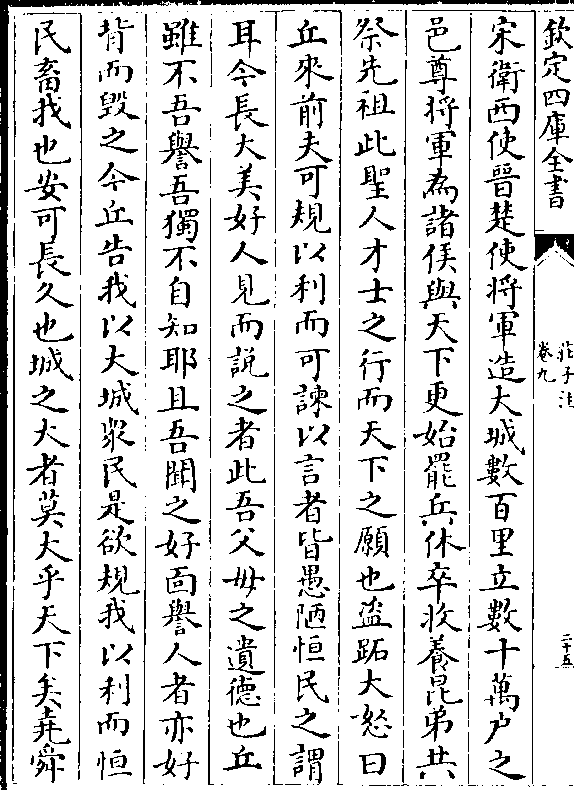 欽定四庫全書
莊子注
卷九
二十五
宋衛西使晉楚使将軍造大城數百里立數十萬户之
邑尊将軍為諸侯與天下更始罷兵休卒收養昆弟共
祭先祖此聖人才士之行而天下之願也盜跖大怒曰
丘來前夫可規以利而可諫以言者皆愚陋恒民之謂
耳今長大美好人見而説之者此吾父母之遺德也丘
雖不吾譽吾獨不自知耶且吾聞之好面譽人者亦好
背而毁之今丘告我以大城衆民是欲規我以利而恒
民畜我也安可長久也城之大者莫大乎天下矣堯舜